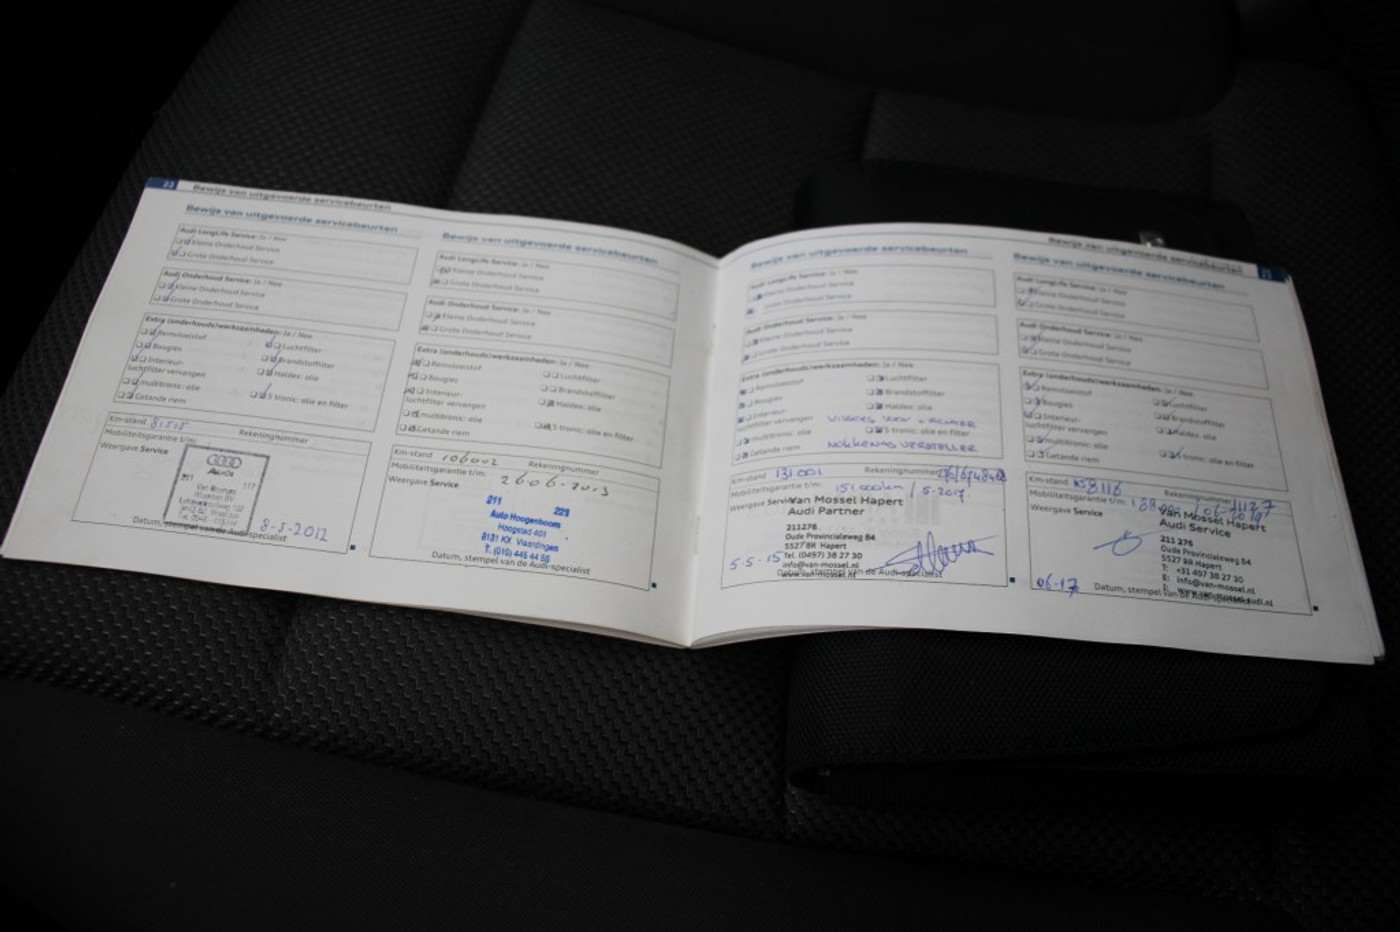 22 Bewijs van uitgevoerde servicebeurten
Bewijs van uitgevoerde servicebeurten
Audi LongLife Service: Ja / Nee
Kleine Onderhoud Service
Grote Onderhoud Service
Audi Onderhoud Service: Ja / Nee
Kleine Onderhoud Service
Grote Onderhoud Service
Extra (onderhouds)werkzaamheden: Ja / Nee
Remvloeistof Luchtfilter
Bougies Brandstoffilter
Interieur- Haldex: olie
luchtfilter vervangen
multitronic: olie
Getande riem S tronic: olie en filter
Km-stand 81515 Rekeningnummer
Mobiliteitsgarantie t/m:
Weergave Service
Audi
8-5-2012
Datum, stempel van de Audi-specialist
Bewijs van uitgevoerde servicebeurten
Audi LongLife Service: Ja / Nee
Kleine Onderhoud Service
Grote Onderhoud Service
Audi Onderhoud Service: Ja / Nee
Kleine Onderhoud Service
Grote Onderhoud Service
Extra (onderhouds)werkzaamheden: Ja / Nee
Remvloeistof Luchtfilter
Bougies Brandstoffilter
Interieur- Haldex: olie
luchtfilter vervangen
multitronic: olie
Getande riem S tronic: olie en filter
Km-stand 106002 Rekeningnummer
Mobiliteitsgarantie t/m: 26-06-2013
Weergave Service
211 221
Auto Hoogenboom
Hoogstad 401
3131 KX Vlaardingen
T. (010) 445 44 55
Datum, stempel van de Audi-specialist
Bewijs van uitgevoerde servicebeurten
Audi LongLife Service: Ja / Nee
Kleine Onderhoud Service
Audi Onderhoud Service: Ja / Nee
Kleine Onderhoud Service
Grote Onderhoud Service
Extra (onderhouds)werkzaamheden: Ja / Nee
Remvloeistof Luchtfilter
Bougies Brandstoffilter
Interieur- Haldex: olie
luchtfilter vervangen
multitronic: olie S tronic: olie en filter
Getande riem NOKKENAS VERSTELLER
Km-stand 131001 Rekeningnummer
Mobiliteitsgarantie t/m: 151000km / 5-2017
Weergave Service
Van Mossel Hapert
Audi Partner
211276
Oude Provincialeweg 84
5527 BR Hapert
Tel. (0497) 38 27 30
5-5-15 info@van-mossel.nl
www.van-mossel.nl
Datum, stempel van de Audi-specialist
Bewijs van uitgevoerde servicebeurten
Bewijs van uitgevoerde servicebeurten
Audi LongLife Service: Ja / Nee
Kleine Onderhoud Service
Grote Onderhoud Service
Audi Onderhoud Service: Ja / Nee
Kleine Onderhoud Service
Grote Onderhoud Service
Extra (onderhouds)werkzaamheden: Ja / Nee
Remvloeistof Luchtfilter
Bougies Brandstoffilter
Interieur- Haldex: olie
luchtfilter vervangen
multitronic: olie
Getande riem S tronic: olie en filter
Km-stand 158116 Rekeningnummer
Mobiliteitsgarantie t/m:
Weergave Service
Van Mossel Hapert
Audi Service
211 276
Oude Provincialeweg 84
5527 BR Hapert
T: +31 497 38 27 30
E: info@van-mossel.nl
I: www.van-mossel-audi.nl
06-17
Datum, stempel van de Audi-specialist